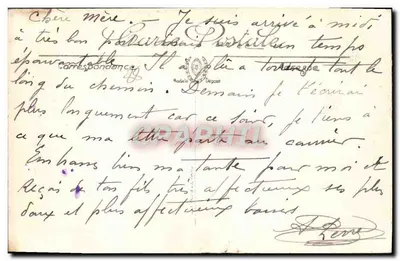 Chère Mère. Je suis arrivé à midi
à très bon port mais un temps
épouvantable. Il a plu à tout le
long du chemin. Demain je t'écrirai
plus longuement car ce soir, je tiens à
ce que ma lettre parte au courrier.
Embrasse bien ma tante pour moi et
Reçois de ton fils très affectueux ses plus
doux et plus affectueux baisers
Carte Postale
Correspondance